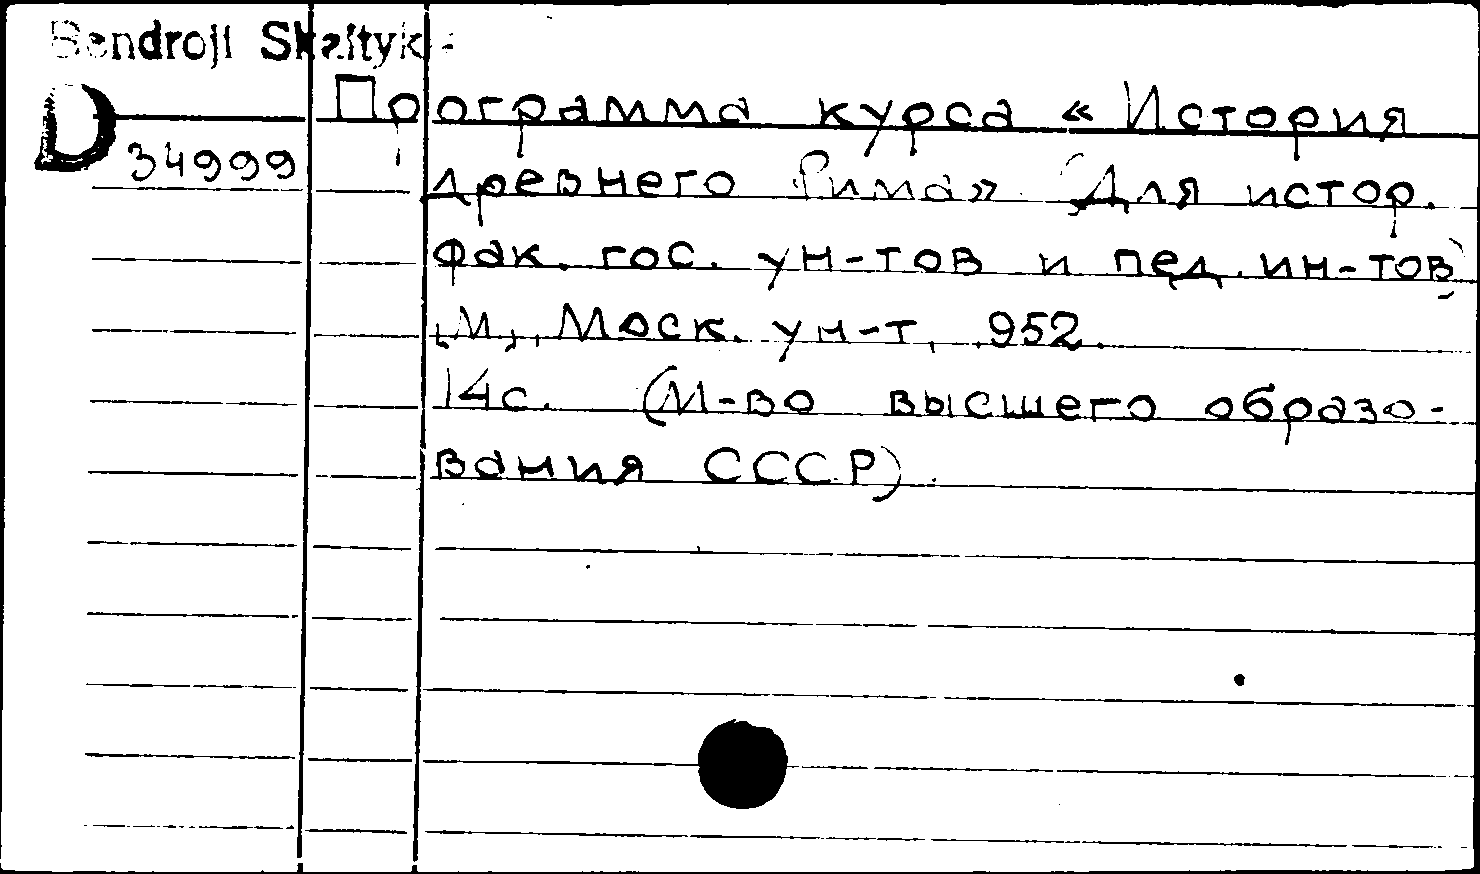 Bendroji Skaityk-
D
34999
Программа курса «История
древнего Рима» (Для истор.
фак. гос. ун-тов и пед. ин-тов)
[М], Моск. ун-т, 952.
14с. (М-во высшего образо-
вания СССР).